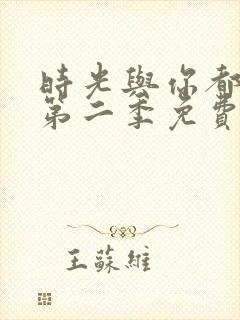 時光與你都
第二季免費
王蘇維